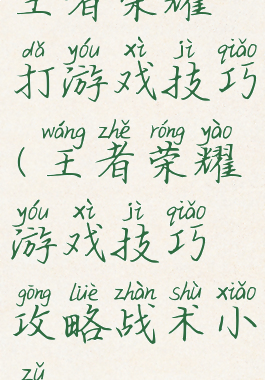 王者荣耀
dǎ yóu xì jì qiǎo
打游戏技巧
wáng zhě róng yào
(王者荣耀
yóu xì jì qiǎo
游戏技巧
gōng lüè zhàn shù xiǎo
攻略战术小
zǔ